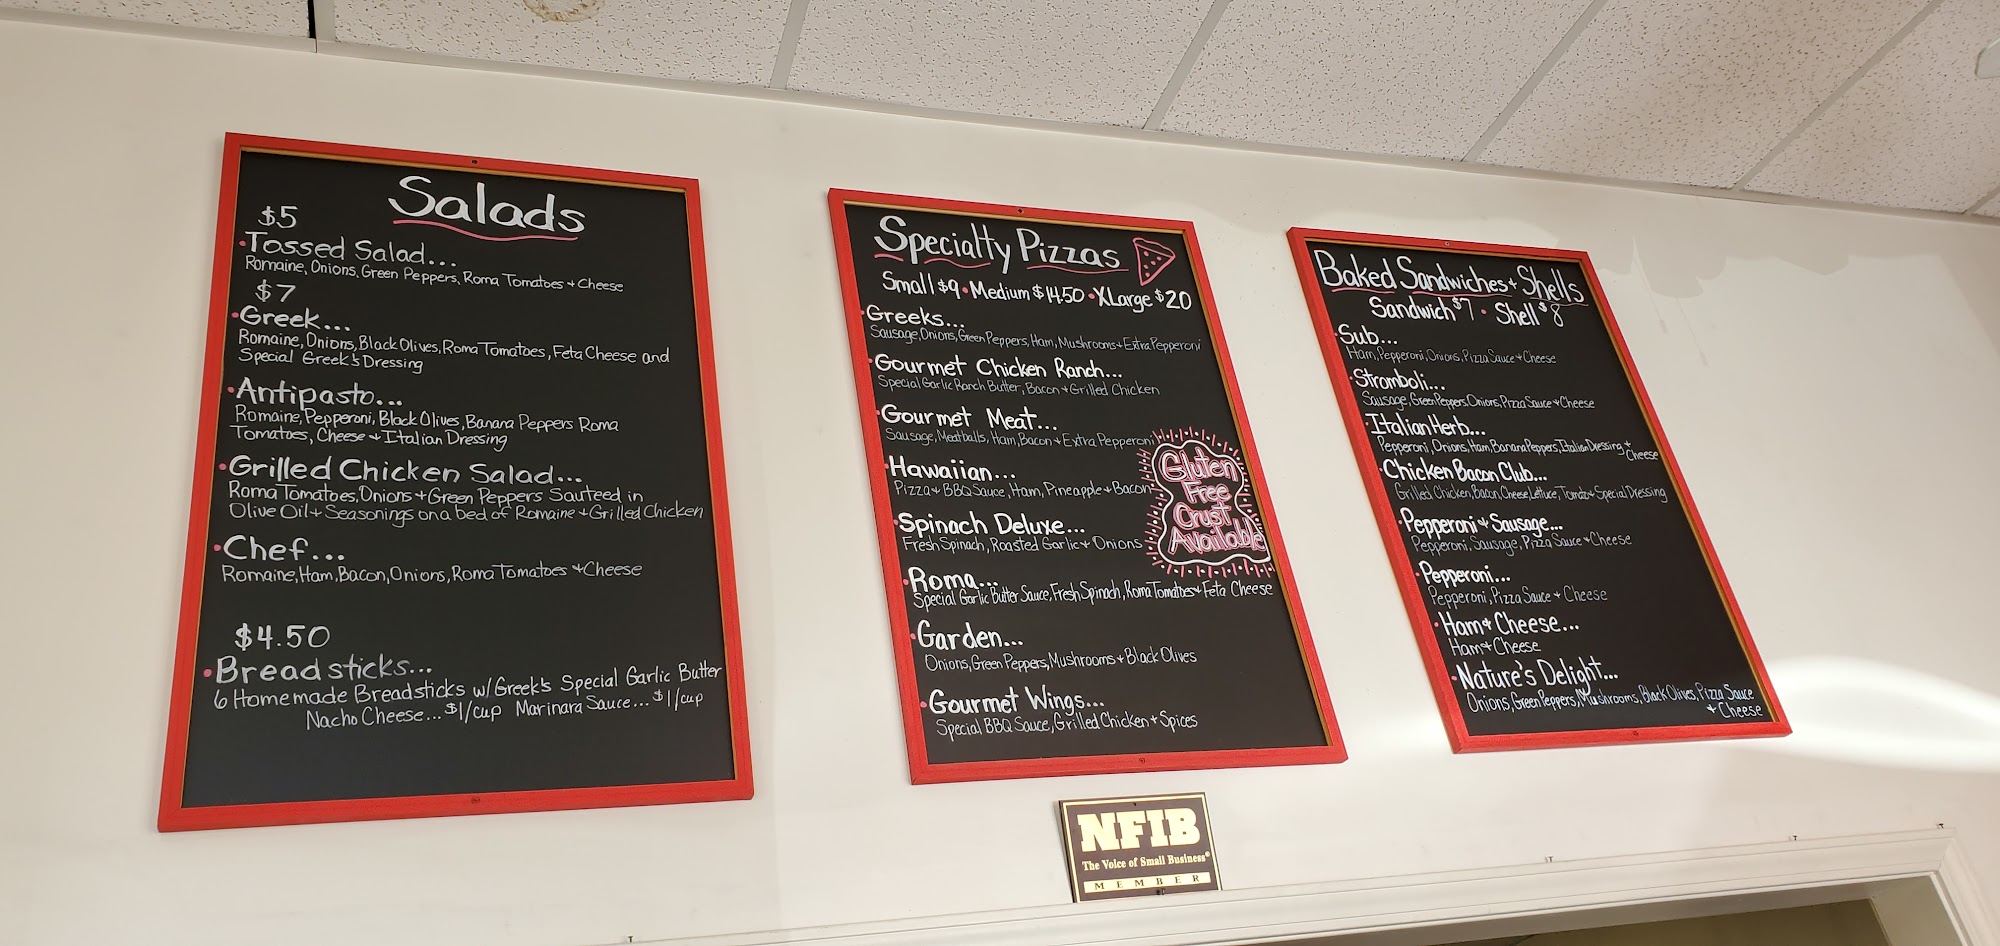 Salads
$5
•Tossed Salad...
Romaine, Onions, Green Peppers, Roma Tomatoes + Cheese
$7
•Greek...
Romaine, Onions, Black Olives, Roma Tomatoes, Feta Cheese and
Special Greek's Dressing
•Antipasto...
Romaine, Pepperoni, Black Olives, Banana Peppers Roma
Tomatoes, Cheese + Italian Dressing
•Grilled Chicken Salad...
Roma Tomatoes, Onions + Green Peppers Sauteed in
Olive Oil + Seasonings on a bed of Romaine + Grilled Chicken
•Chef...
Romaine, Ham, Bacon, Onions, Roma Tomatoes + Cheese
$4.50
•Breadsticks...
6 Homemade Breadsticks w/ Greek's Special Garlic Butter
Nacho Cheese... $1/cup Marinara Sauce... $1/cup
Specialty Pizzas
Small $9 • Medium $14.50 • XLarge $20
•Greeks...
Sausage, Onions, Green Peppers, Ham, Mushrooms + Extra Pepperoni
•Gourmet Chicken Ranch...
Special Garlic Ranch Butter, Bacon + Grilled Chicken
•Gourmet Meat...
Sausage, Meatballs, Ham, Bacon + Extra Pepperoni
•Hawaiian...
Pizza + BBQ Sauce, Ham, Pineapple + Bacon
•Spinach Deluxe...
Fresh Spinach, Roasted Garlic + Onions
•Roma...
Special Garlic Butter Sauce, Fresh Spinach, Roma Tomatoes + Feta Cheese
•Garden...
Onions, Green Peppers, Mushrooms + Black Olives
•Gourmet Wings...
Special BBQ Sauce, Grilled Chicken + Spices
Gluten
Free
Crust
Available
Baked Sandwiches + Shells
Sandwich $7 • Shell $8
•Sub...
Ham, Pepperoni, Onions, Pizza Sauce + Cheese
•Stromboli...
Sausage, Green Peppers, Onions, Pizza Sauce + Cheese
•Italian Herb...
Pepperoni, Onions, Ham, Banana Peppers, Italian Dressing +
Cheese
•Chicken Bacon Club...
Grilled Chicken, Bacon, Cheese, Lettuce, Tomato + Special Dressing
•Pepperoni + Sausage...
Pepperoni, Sausage, Pizza Sauce + Cheese
•Pepperoni...
Pepperoni, Pizza Sauce + Cheese
•Ham + Cheese...
Ham + Cheese
•Nature's Delight...
Onions, Green Peppers, Mushrooms, Black Olives, Pizza Sauce
+ Cheese
NFIB
The Voice of Small Business®
MEMBER